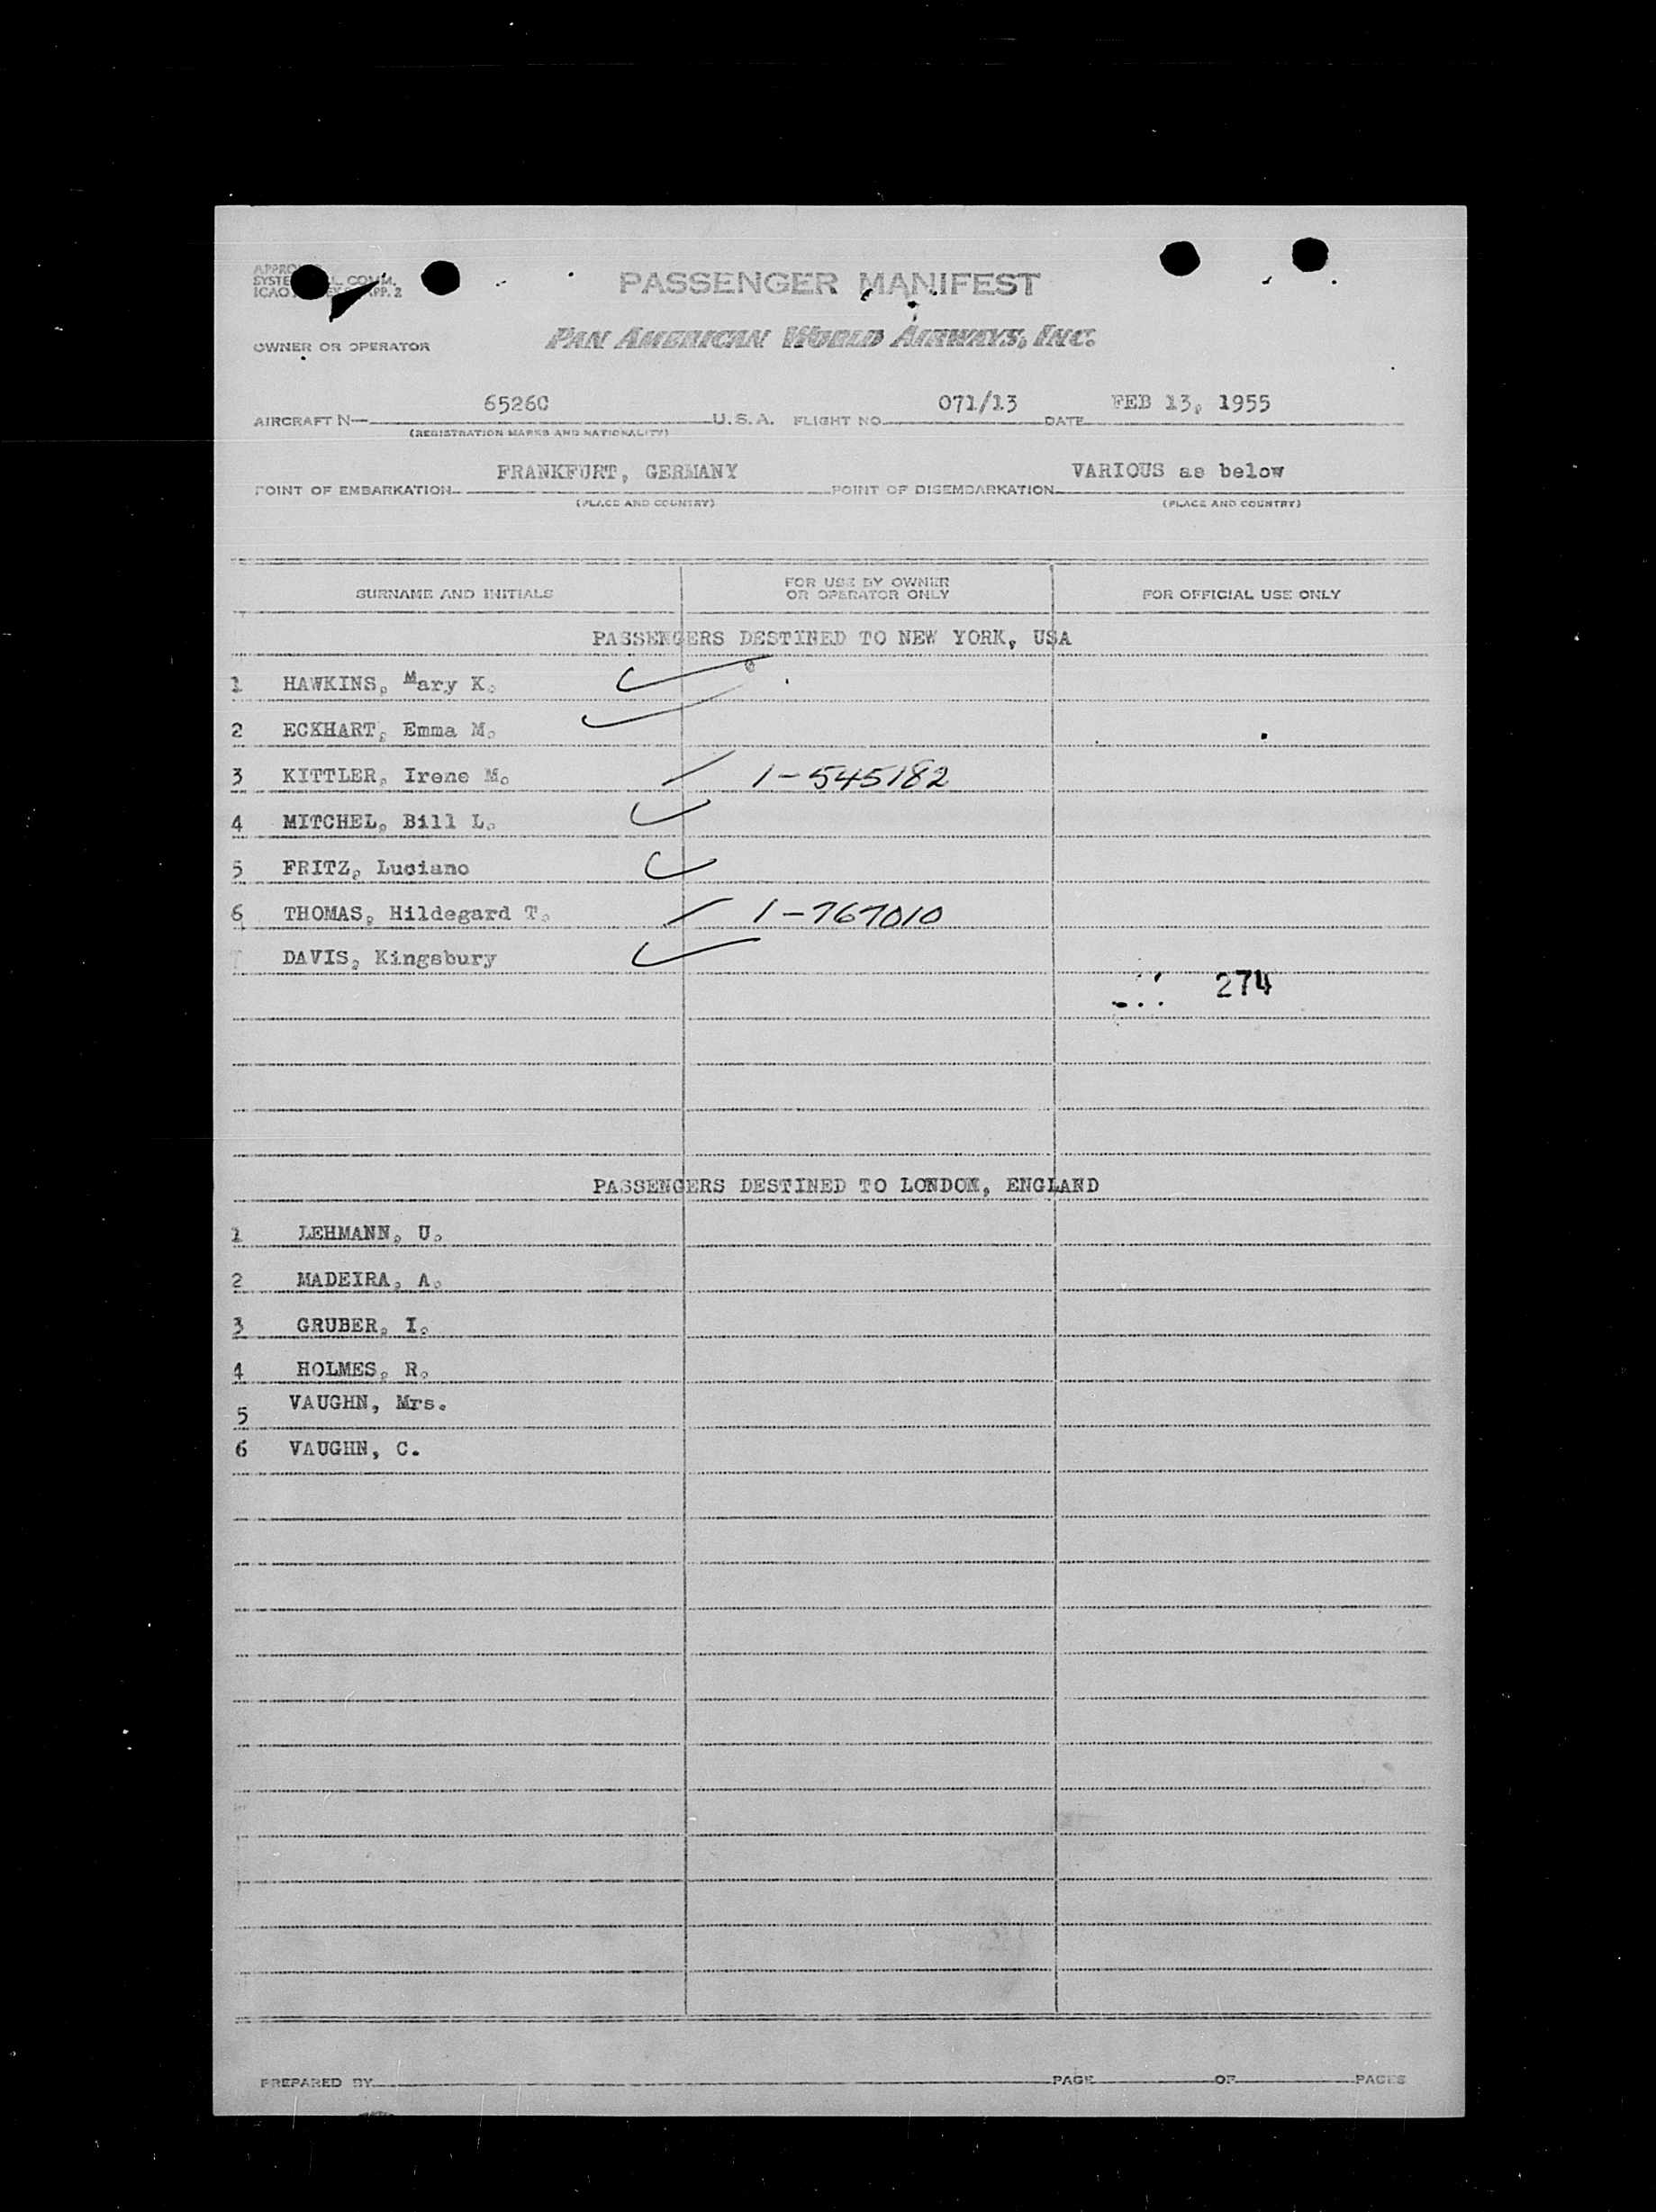 PASSENGER MANIFEST
OWNER OR OPERATOR PAN AMERICAN WORLD AIRWAYS, INC.
AIRCRAFT N— 6526C U.S.A. FLIGHT NO. 071/13 DATE FEB 13, 1955
(REGISTRATION MARKS AND NATIONALITY)
POINT OF EMBARKATION FRANKFURT, GERMANY POINT OF DISEMBARKATION VARIOUS as below
(PLACE AND COUNTRY) (PLACE AND COUNTRY)
SURNAME AND INITIALS FOR USE BY OWNER OR OPERATOR ONLY FOR OFFICIAL USE ONLY
PASSENGERS DESTINED TO NEW YORK, USA
1 HAWKINS, Mary K.
2 ECKHART, Emma M.
3 KITTLER, Irene M. 1-545182
4 MITCHEL, Bill L.
5 FRITZ, Luciano
6 THOMAS, Hildegard T. 1-767010
7 DAVIS, Kingsbury
274
PASSENGERS DESTINED TO LONDON, ENGLAND
1 LEHMANN, U.
2 MADEIRA, A.
3 GRUBER, I.
4 HOLMES, R.
5 VAUGHN, Mrs.
6 VAUGHN, C.
PREPARED BY PAGE OF PAGES